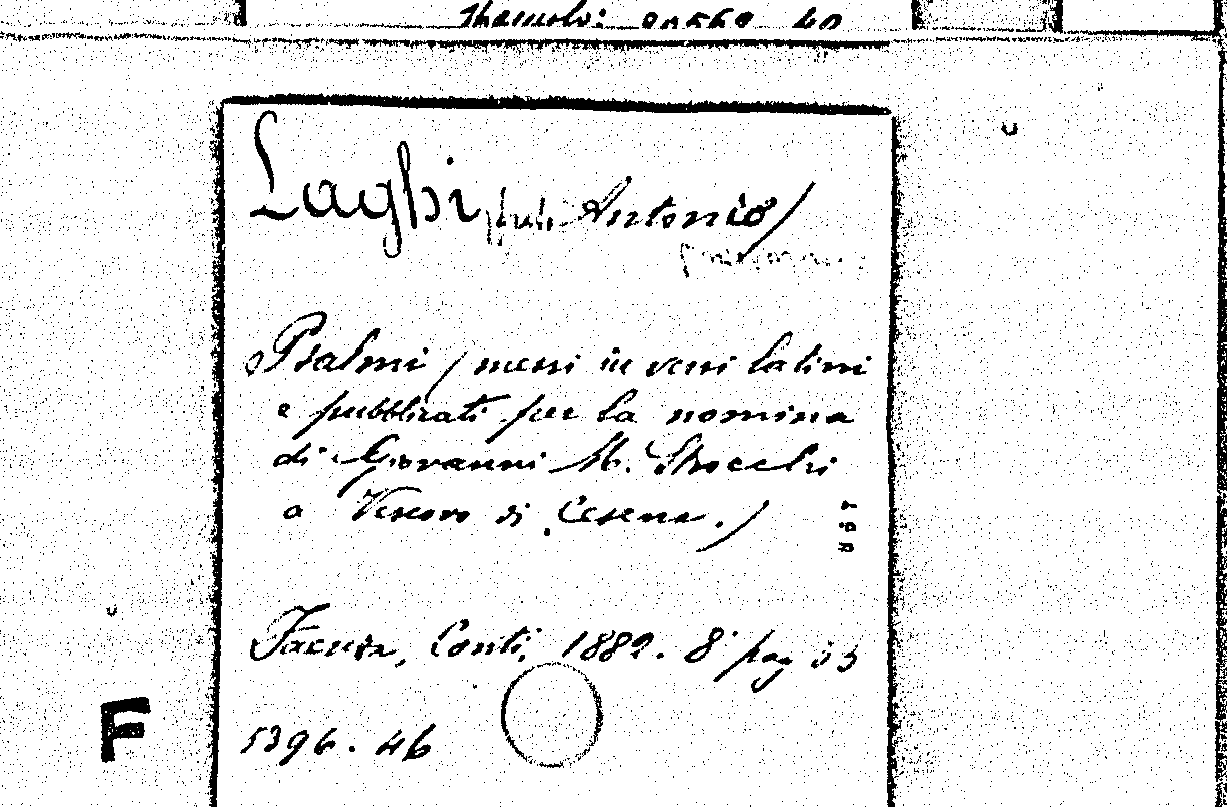 Laghi, Antonio/
Psalmi / messi in versi latini
e pubblicati per la nomina
di Giovanni M. Strocchi
a Vescovo di Cesena./
Faenza, Conti, 1882. 8° pag 33
5396. 46
F